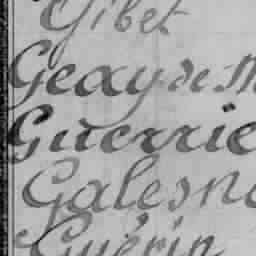 Gibet
Geay de M
Guerrie
Galesn
Guérin